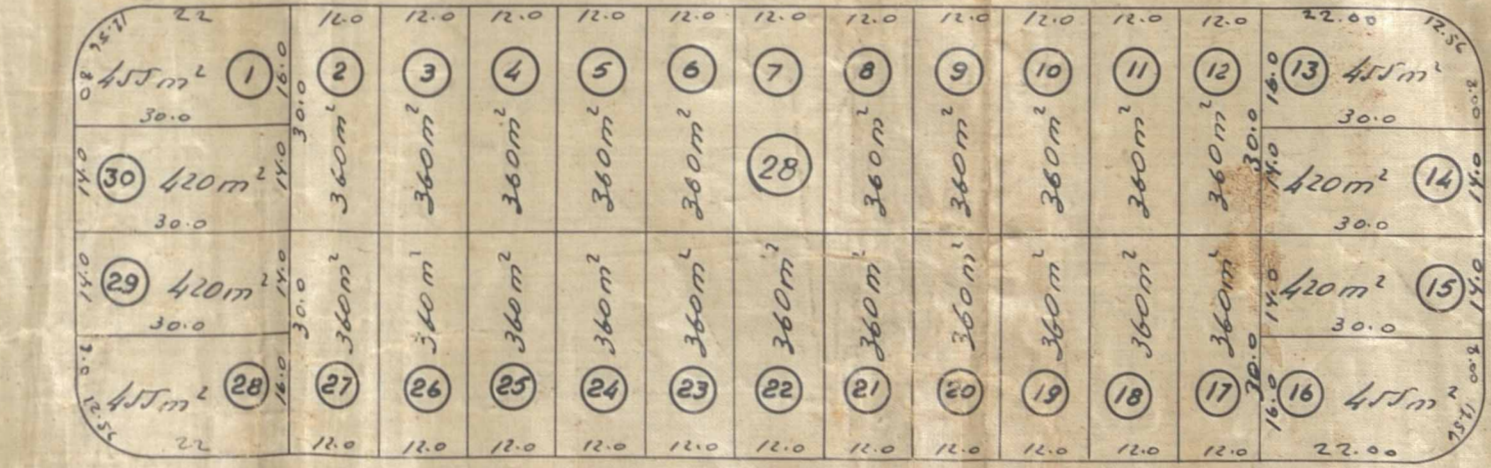 22 12.0 12.0 12.0 12.0 12.0 12.0 12.0 12.0 12.0 12.0 12.0 22.00
12.56 12.56
1 2 3 4 5 6 7 8 9 10 11 12 13
455m² 16.0 16.0 455m²
8.0 30.0 30.0 30.0 30.0 8.00
360m² 360m² 360m² 360m² 360m² 28 360m² 360m² 360m² 360m² 360m²
14.0 30 420m² 14.0 14.0 420m² 14 14.0
30.0 30.0
14.0 29 420m² 14.0 14.0 420m² 15 14.0
30.0 30.0 30.0 30.0
360m² 360m² 360m² 360m² 360m² 360m² 360m² 360m² 360m² 360m² 360m²
8.00
455m² 28 16.0 27 26 25 24 23 22 21 20 19 18 17 16.0 16 455m²
12.56
22 12.0 12.0 12.0 12.0 12.0 12.0 12.0 12.0 12.0 12.0 12.0 22.00